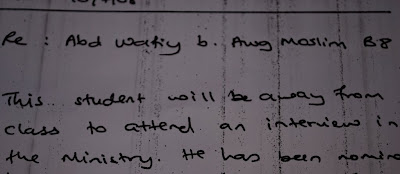 Re : Abd Wafiy b. Awg Moslim B8
This student will be away from
class to attend an interview in
the Ministry. He has been